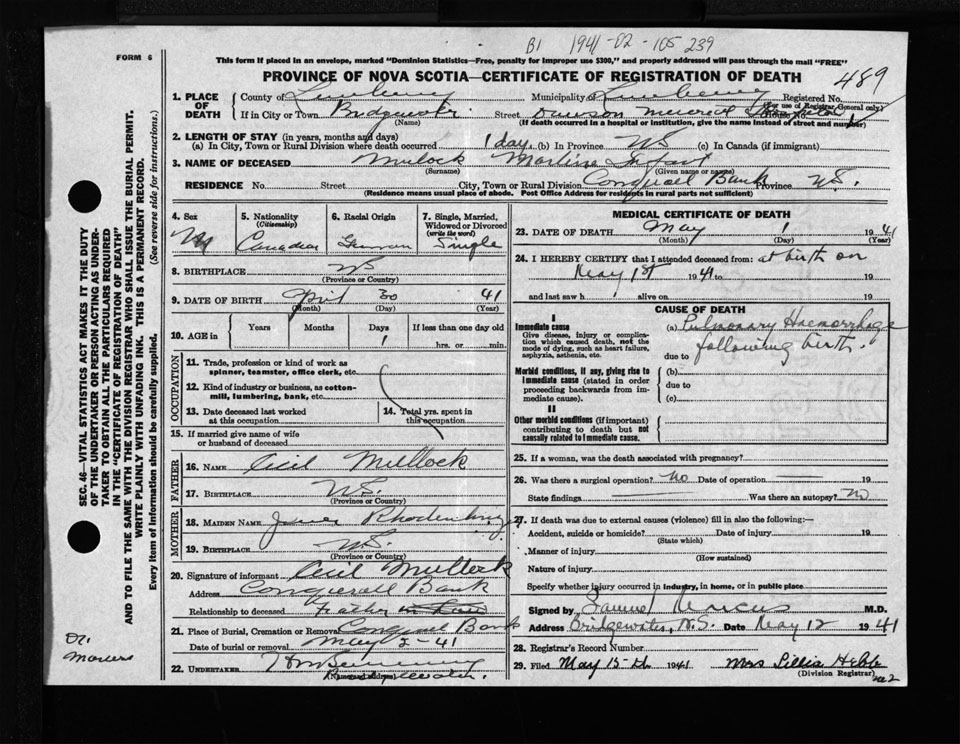 B1 1941-02-105239
FORM 6
This form if placed in an envelope, marked "Dominion Statistics—Free, penalty for improper use $300," and properly addressed will pass through the mail "FREE"
PROVINCE OF NOVA SCOTIA—CERTIFICATE OF REGISTRATION OF DEATH
489
1. PLACE OF DEATH County of Lunenburg Municipality of Lunenburg Registered No.
(For use of Registrar General only)
If in City or Town Bridgewater Street Dawson Memorial Hospital
(Name) (If death occurred in a hospital or institution, give the name instead of street and number)
2. LENGTH OF STAY (in years, months and days)
(a) In City, Town or Rural Division where death occurred 1 day (b) In Province NS (c) In Canada (if immigrant)
3. NAME OF DECEASED Mulock Infant
(Surname) (Given name or names)
RESIDENCE No. Street City, Town or Rural Division Conquerall Bank Province N.S.
(Residence means usual place of abode. Post Office Address for residents in rural parts not sufficient)
4. Sex M
5. Nationality (Citizenship) Canadian
6. Racial Origin German
7. Single, Married, Widowed or Divorced (write the word) Single
8. BIRTHPLACE NS
(Province or Country)
9. DATE OF BIRTH April 30 41
(Month) (Day) (Year)
10. AGE in Years Months Days If less than one day old
1 hrs. or min.
OCCUPATION
11. Trade, profession or kind of work as spinner, teamster, office clerk, etc.
12. Kind of industry or business, as cotton-mill, lumbering, bank, etc.
13. Date deceased last worked at this occupation
14. Total yrs. spent in this occupation
15. If married give name of wife or husband of deceased
FATHER
16. NAME Cecil Mullock
17. BIRTHPLACE N.S.
(Province or Country)
MOTHER
18. MAIDEN NAME Rhodenhizer
19. BIRTHPLACE N.S.
(Province or Country)
20. Signature of informant Cecil Mullock
Address Conquerall Bank
Relationship to deceased Father
21. Place of Burial, Cremation or Removal Conquerall Bank
Date of burial or removal May 2-41
22. UNDERTAKER
(Name and address) Bridgewater.
MEDICAL CERTIFICATE OF DEATH
23. DATE OF DEATH May 1 1941
(Month) (Day) (Year)
24. I HEREBY CERTIFY that I attended deceased from: at birth on
May 1st 1941 to 19
and last saw h alive on 19
CAUSE OF DEATH
I
Immediate cause
Give disease, injury or complication which caused death, not the mode of dying, such as heart failure, asphyxia, asthenia, etc.
(a) Pulmonary Haemorrhage
following birth.
due to
Morbid conditions, if any, giving rise to immediate cause (stated in order proceeding backwards from immediate cause).
(b)
due to
(c)
II
Other morbid conditions (if important) contributing to death but not causally related to immediate cause.
25. If a woman, was the death associated with pregnancy?
26. Was there a surgical operation? No Date of operation 19
State findings Was there an autopsy? No
27. If death was due to external causes (violence) fill in also the following:—
Accident, suicide or homicide? Date of injury 19
(State which)
Manner of injury
(How sustained)
Nature of injury
Specify whether injury occurred in industry, in home, or in public place
Signed by Samuel Marcus M.D.
Address Bridgewater, N.S. Date May 12 1941
28. Registrar's Record Number
29. Filed May 15th 1941 Mrs Lillis Hebb
(Division Registrar)
SEC. 46—VITAL STATISTICS ACT MAKES IT THE DUTY
OF THE UNDERTAKER OR PERSON ACTING AS UNDER-
TAKER TO OBTAIN ALL THE PARTICULARS REQUIRED
IN THE "CERTIFICATE OF REGISTRATION OF DEATH"
AND TO FILE THE SAME WITH THE DIVISION REGISTRAR WHO SHALL ISSUE THE BURIAL PERMIT.
WRITE PLAINLY WITH UNFADING INK. THIS IS A PERMANENT RECORD.
Every item of information should be carefully supplied. (See reverse side for instructions.)
Dr.
Marcus